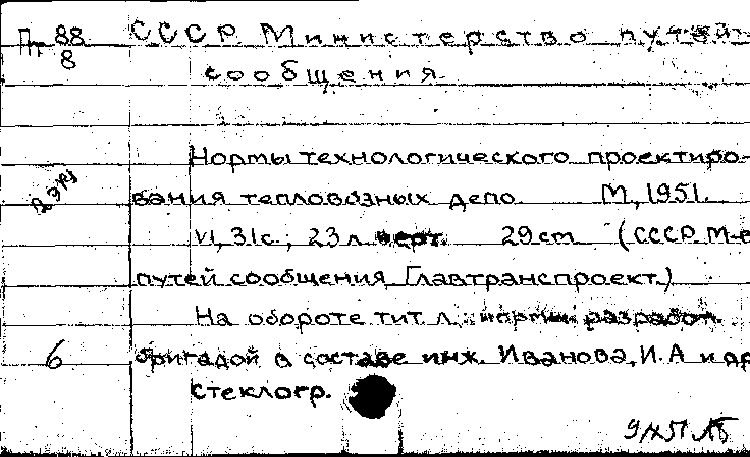 Пт 88 СССР Министерство путей
8 сообщения
Нормы технологического проектиро-
вания тепловозных депо. М, 1951.
VI, 31с.; 23 л. черт. 29 см (СССР. М-в
путей сообщения Главтранспроект.)
На обороте тит л. нормы разработ.
6 бригадой в составе инж. Иванова, И.А и др
стеклогр.